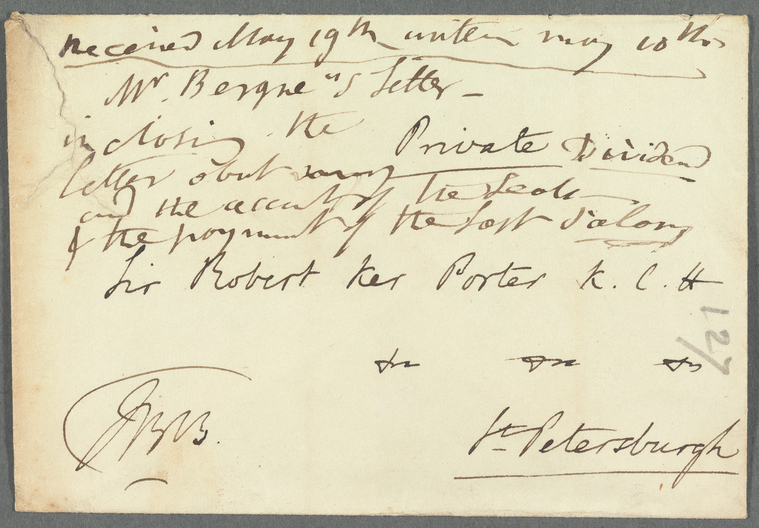 Received May 19th written may 10th
Mr. Bergne"s letter -
inclosing the
Private Dividend
letter about
and the account of the Seals
& the payment of the last Salary
Sir Robert Ker Porter K. C. H
&c &c &c
JBB.
St. Petersburgh
127